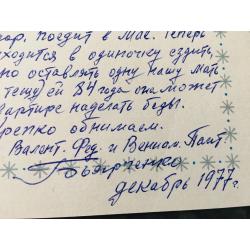 поедит в Мае. Теперь
ходится в одиночку ездить,
но оставлять одну нашу мать
тещу) ей 84 года она может
вартире наделать беды.
репко обнимаем.
Валент. Фед. и Вениам. Пант
декабрь 1977 г.